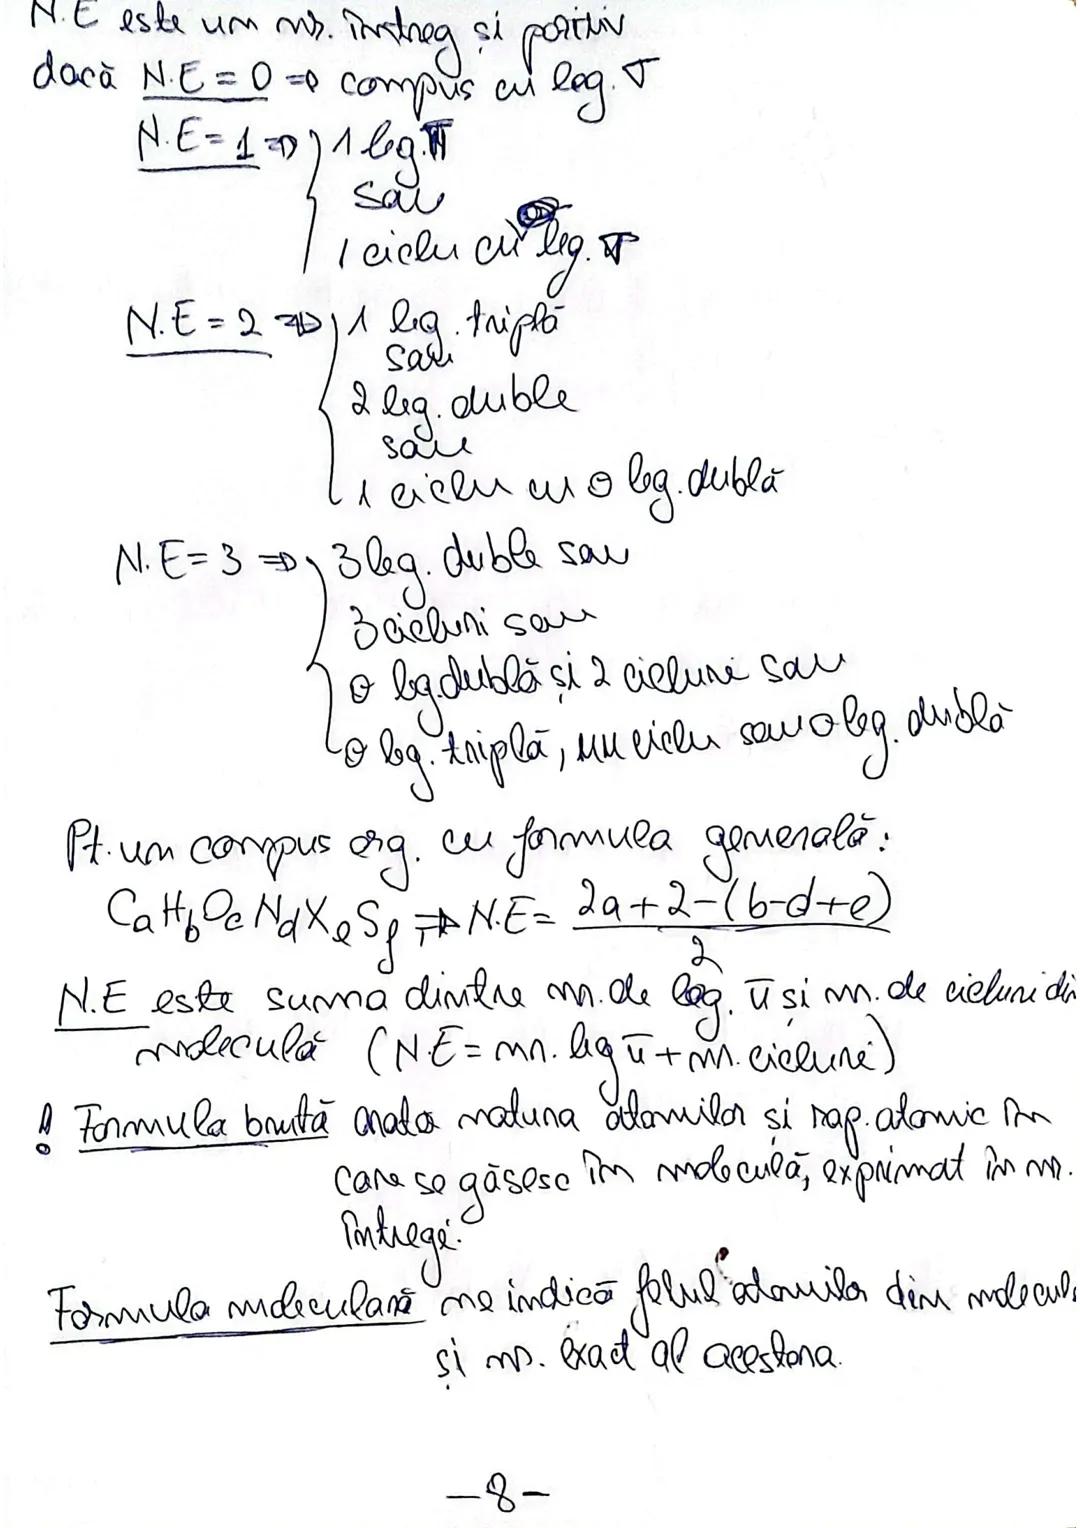 N.E este un nr. întreg și pozitiv
dacă N.E = 0 => compus cu leg. σ
N.E = 1 => 1 leg. π
sau
1 ciclu cu leg. σ
N.E = 2 => 1 leg. triplă
sau
2 leg. duble
sau
1 ciclu cu o leg. dublă
N.E = 3 => 3 leg. duble sau
3 cicluri sau
o leg. dublă și 2 cicluri sau
o leg. triplă, un ciclu sau o leg. dublă
Pt. un compus org. cu formula generală:
CaHbOcNdXeSf => N.E = (2a+2-(b-d+e))/2
N.E este suma dintre nr. de leg. π și nr. de cicluri din
moleculă (N.E = nr. leg π + nr. cicluri)
! Formula brută arată natura atomilor și rap. atomic în
care se găsesc în moleculă, exprimat în nr.
întregi.
Formula moleculară ne indică felul atomilor din molecula
și nr. exact al acestora.
-8-